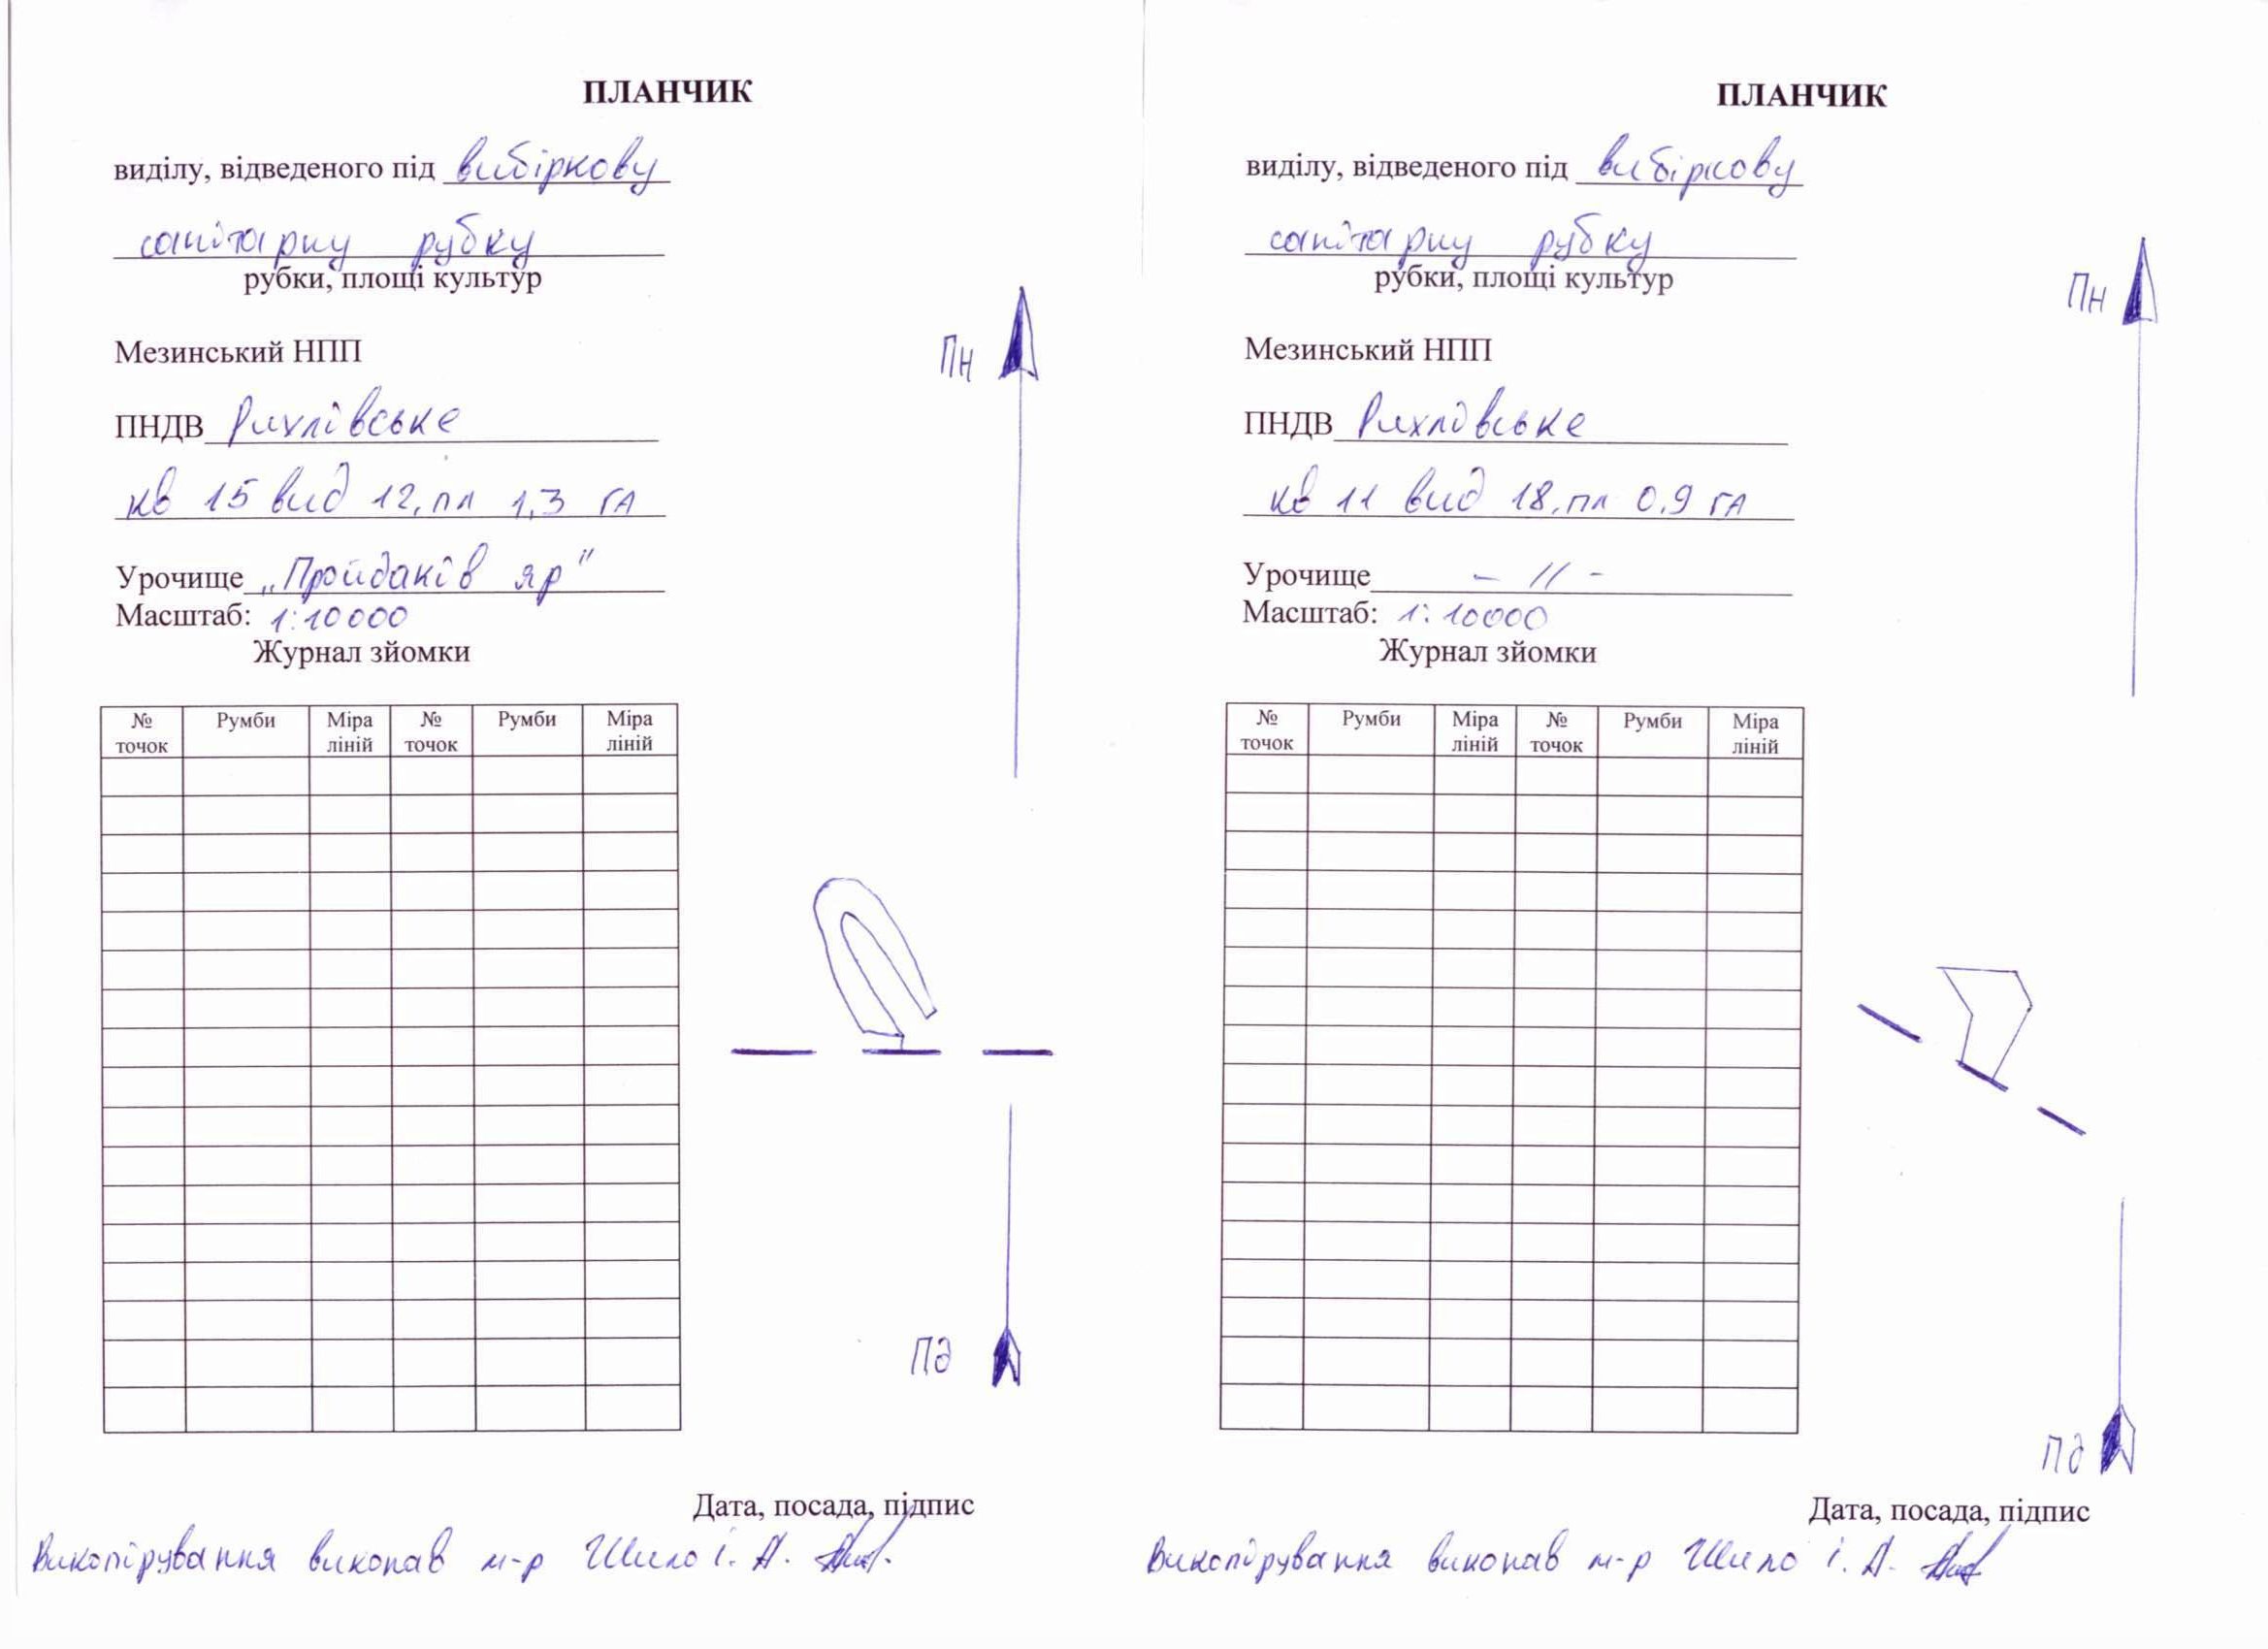 ПЛАНЧИК
виділу, відведеного під вибіркову
санітарну рубку
рубки, площі культур
Мезинський НПП
ПНДВ Рихлівське
кв 15 вид 12, пл 1,3 га
Урочище „Пройдаків яр"
Масштаб: 1:10000
Журнал зйомки
№ точок Румби Міра ліній № точок Румби Міра ліній
Пн
Пд
Дата, посада, підпис
Викопірування виконав м-р Шило І. А.
ПЛАНЧИК
виділу, відведеного під вибіркову
санітарну рубку
рубки, площі культур
Мезинський НПП
ПНДВ Рихлівське
кв 11 вид 18, пл 0,9 га
Урочище - // -
Масштаб: 1:10000
Журнал зйомки
№ точок Румби Міра ліній № точок Румби Міра ліній
Пн
Пд
Дата, посада, підпис
Викопірування виконав м-р Шило І. А.